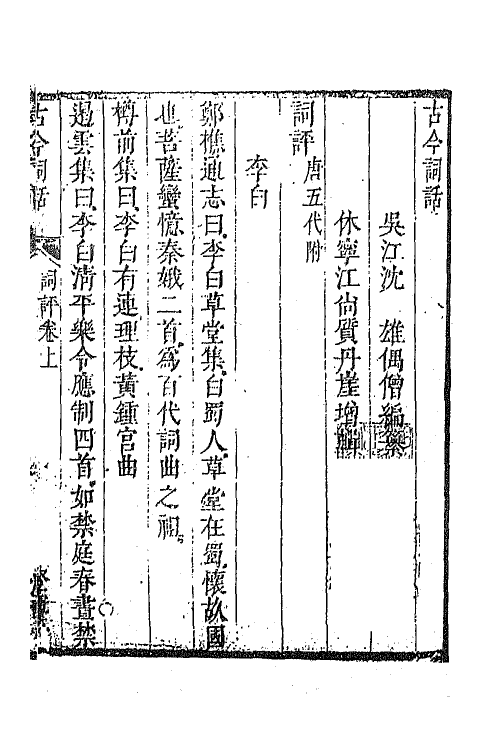 古今詞話
吳江沈　雄偶僧編纂
休寧江尙質丹崖增輯
詞評唐五代附
李白
鄭樵通志曰李白草堂集白蜀人草堂在蜀懷故國
也菩薩蠻憶秦娥二首爲百代詞曲之祖
樽前集曰李白有連理枝黃鍾宮曲
遏雲集曰李白淸平樂令應制四首如禁庭春晝禁
古今詞話
詞評卷上